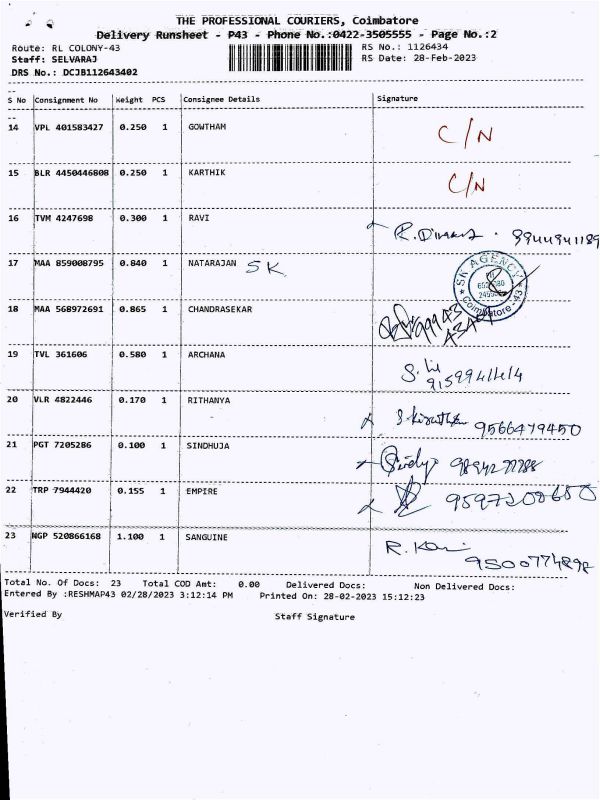 THE PROFESSIONAL COURIERS, Coimbatore
Delivery Runsheet - P43 - Phone No.:0422-3505555 - Page No.:2
Route: RL COLONY-43
RS No.: 1126434
Staff: SELVARAJ
RS Date: 28-Feb-2023
DRS No.: DCJB112643402
S No Consignment No Weight PCS Consignee Details Signature
14 VPL 401583427 0.250 1 GOWTHAM C/N
15 BLR 4450446808 0.250 1 KARTHIK C/N
16 TVM 4247698 0.300 1 RAVI
17 MAA 859008795 0.840 1 NATARAJAN SK
SK AGENCY
Coimbatore-43
18 MAA 568972691 0.865 1 CHANDRASEKAR
19 TVL 361606 0.580 1 ARCHANA
20 VLR 4822446 0.170 1 RITHANYA 9566479450
21 PGT 7205286 0.100 1 SINDHUJA
22 TRP 7944420 0.155 1 EMPIRE
23 NGP 520866168 1.100 1 SANGUINE
Total No. Of Docs: 23 Total COD Amt: 0.00 Delivered Docs: Non Delivered Docs:
Entered By :RESHMAP43 02/28/2023 3:12:14 PM Printed On: 28-02-2023 15:12:23
Verified By Staff Signature